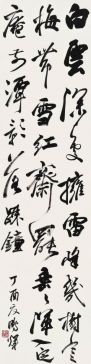 白雲深處擁雷峰幾樹寒
梅帶雪紅齋罷垂垂渾入定
庵前潭影落疎鐘 丁酉